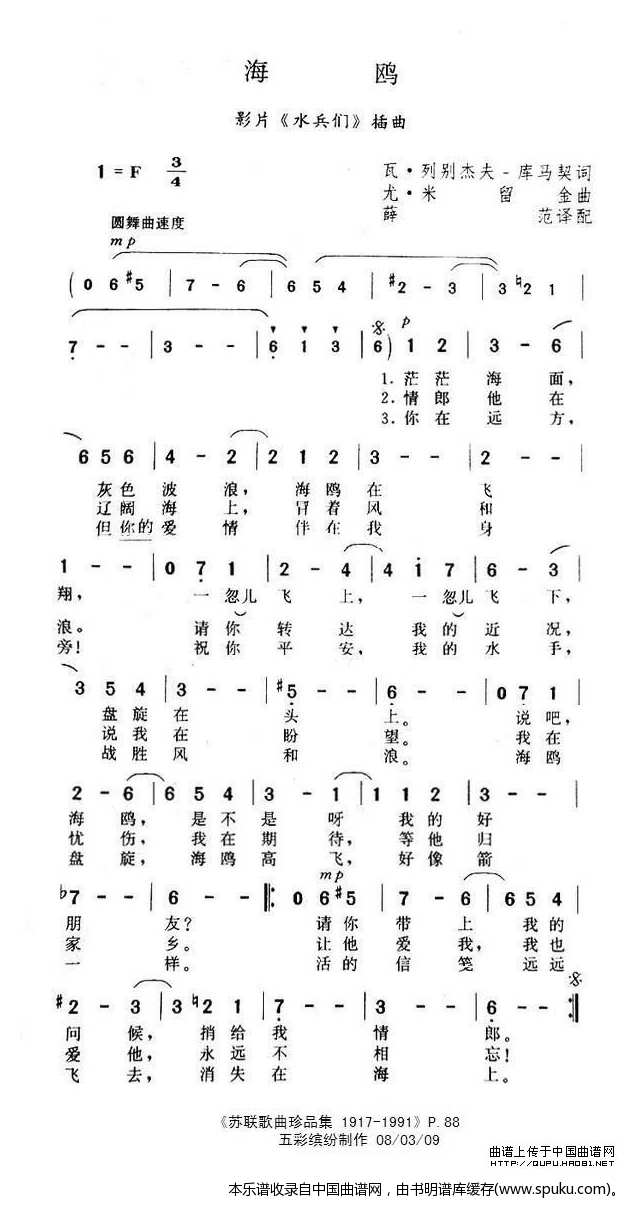 海 鸥
影片《水兵们》插曲
1 = F 3/4
瓦·列别杰夫-库马契词
尤·米留金曲
薛范译配
圆舞曲速度
mp
( 0 6 #5 | 7 - 6 | 6 5 4 | #2 - 3 | 3 ♮2 1 |
7 - - | 3 - - | 6 1 3 | 6 ) 1 2 | 3 - 6 |
p
1. 茫茫 海 面,
2. 情郎 他 在
3. 你在 远 方,
6 5 6 | 4 - 2 | 2 1 2 | 3 - - | 2 - - |
灰色 波 浪, 海鸥 在 飞
辽阔 海 上, 冒着 风 和
但你的 爱 情 伴在 我 身
1 - - | 0 7 1 | 2 - 4 | 4 i 7 | 6 - 3 |
翔, 一忽儿 飞 上, 一忽儿 飞 下,
浪。 请你 转 达 我的 近 况,
旁! 祝你 平 安, 我的 水 手,
3 5 4 | 3 - - | #5 - - | 6 - - | 0 7 1 |
盘旋 在 头 上。 说吧,
说我 在 盼 望。 我在
战胜 风 和 浪。 海鸥
2 - 6 | 6 5 4 | 3 - 1 | 1 1 2 | 3 - - |
海 鸥, 是不 是 呀 我的 好
忧 伤, 我在 期 待, 等他 归
盘 旋, 海鸥 高 飞, 好像 箭
mp
♭7 - - | 6 - - ‖: 0 6 #5 | 7 - 6 | 6 5 4 |
朋 友? 请你 带 上 我的
家 乡。 让他 爱 我, 我也
一 样。 活的 信 笺 远远
#2 - 3 | 3 ♮2 1 | 7 - - | 3 - - | 6 - - :‖
问 候, 捎给 我 情 郎。
爱 他, 永远 不 相 忘!
飞 去, 消失 在 海 上。
《苏联歌曲珍品集 1917-1991》P.88
五彩缤纷制作 08/03/09
曲谱上传于中国曲谱网
http://QUPU.HAO81.NET
本乐谱收录自中国曲谱网,由书明谱库缓存(www.spuku.com).